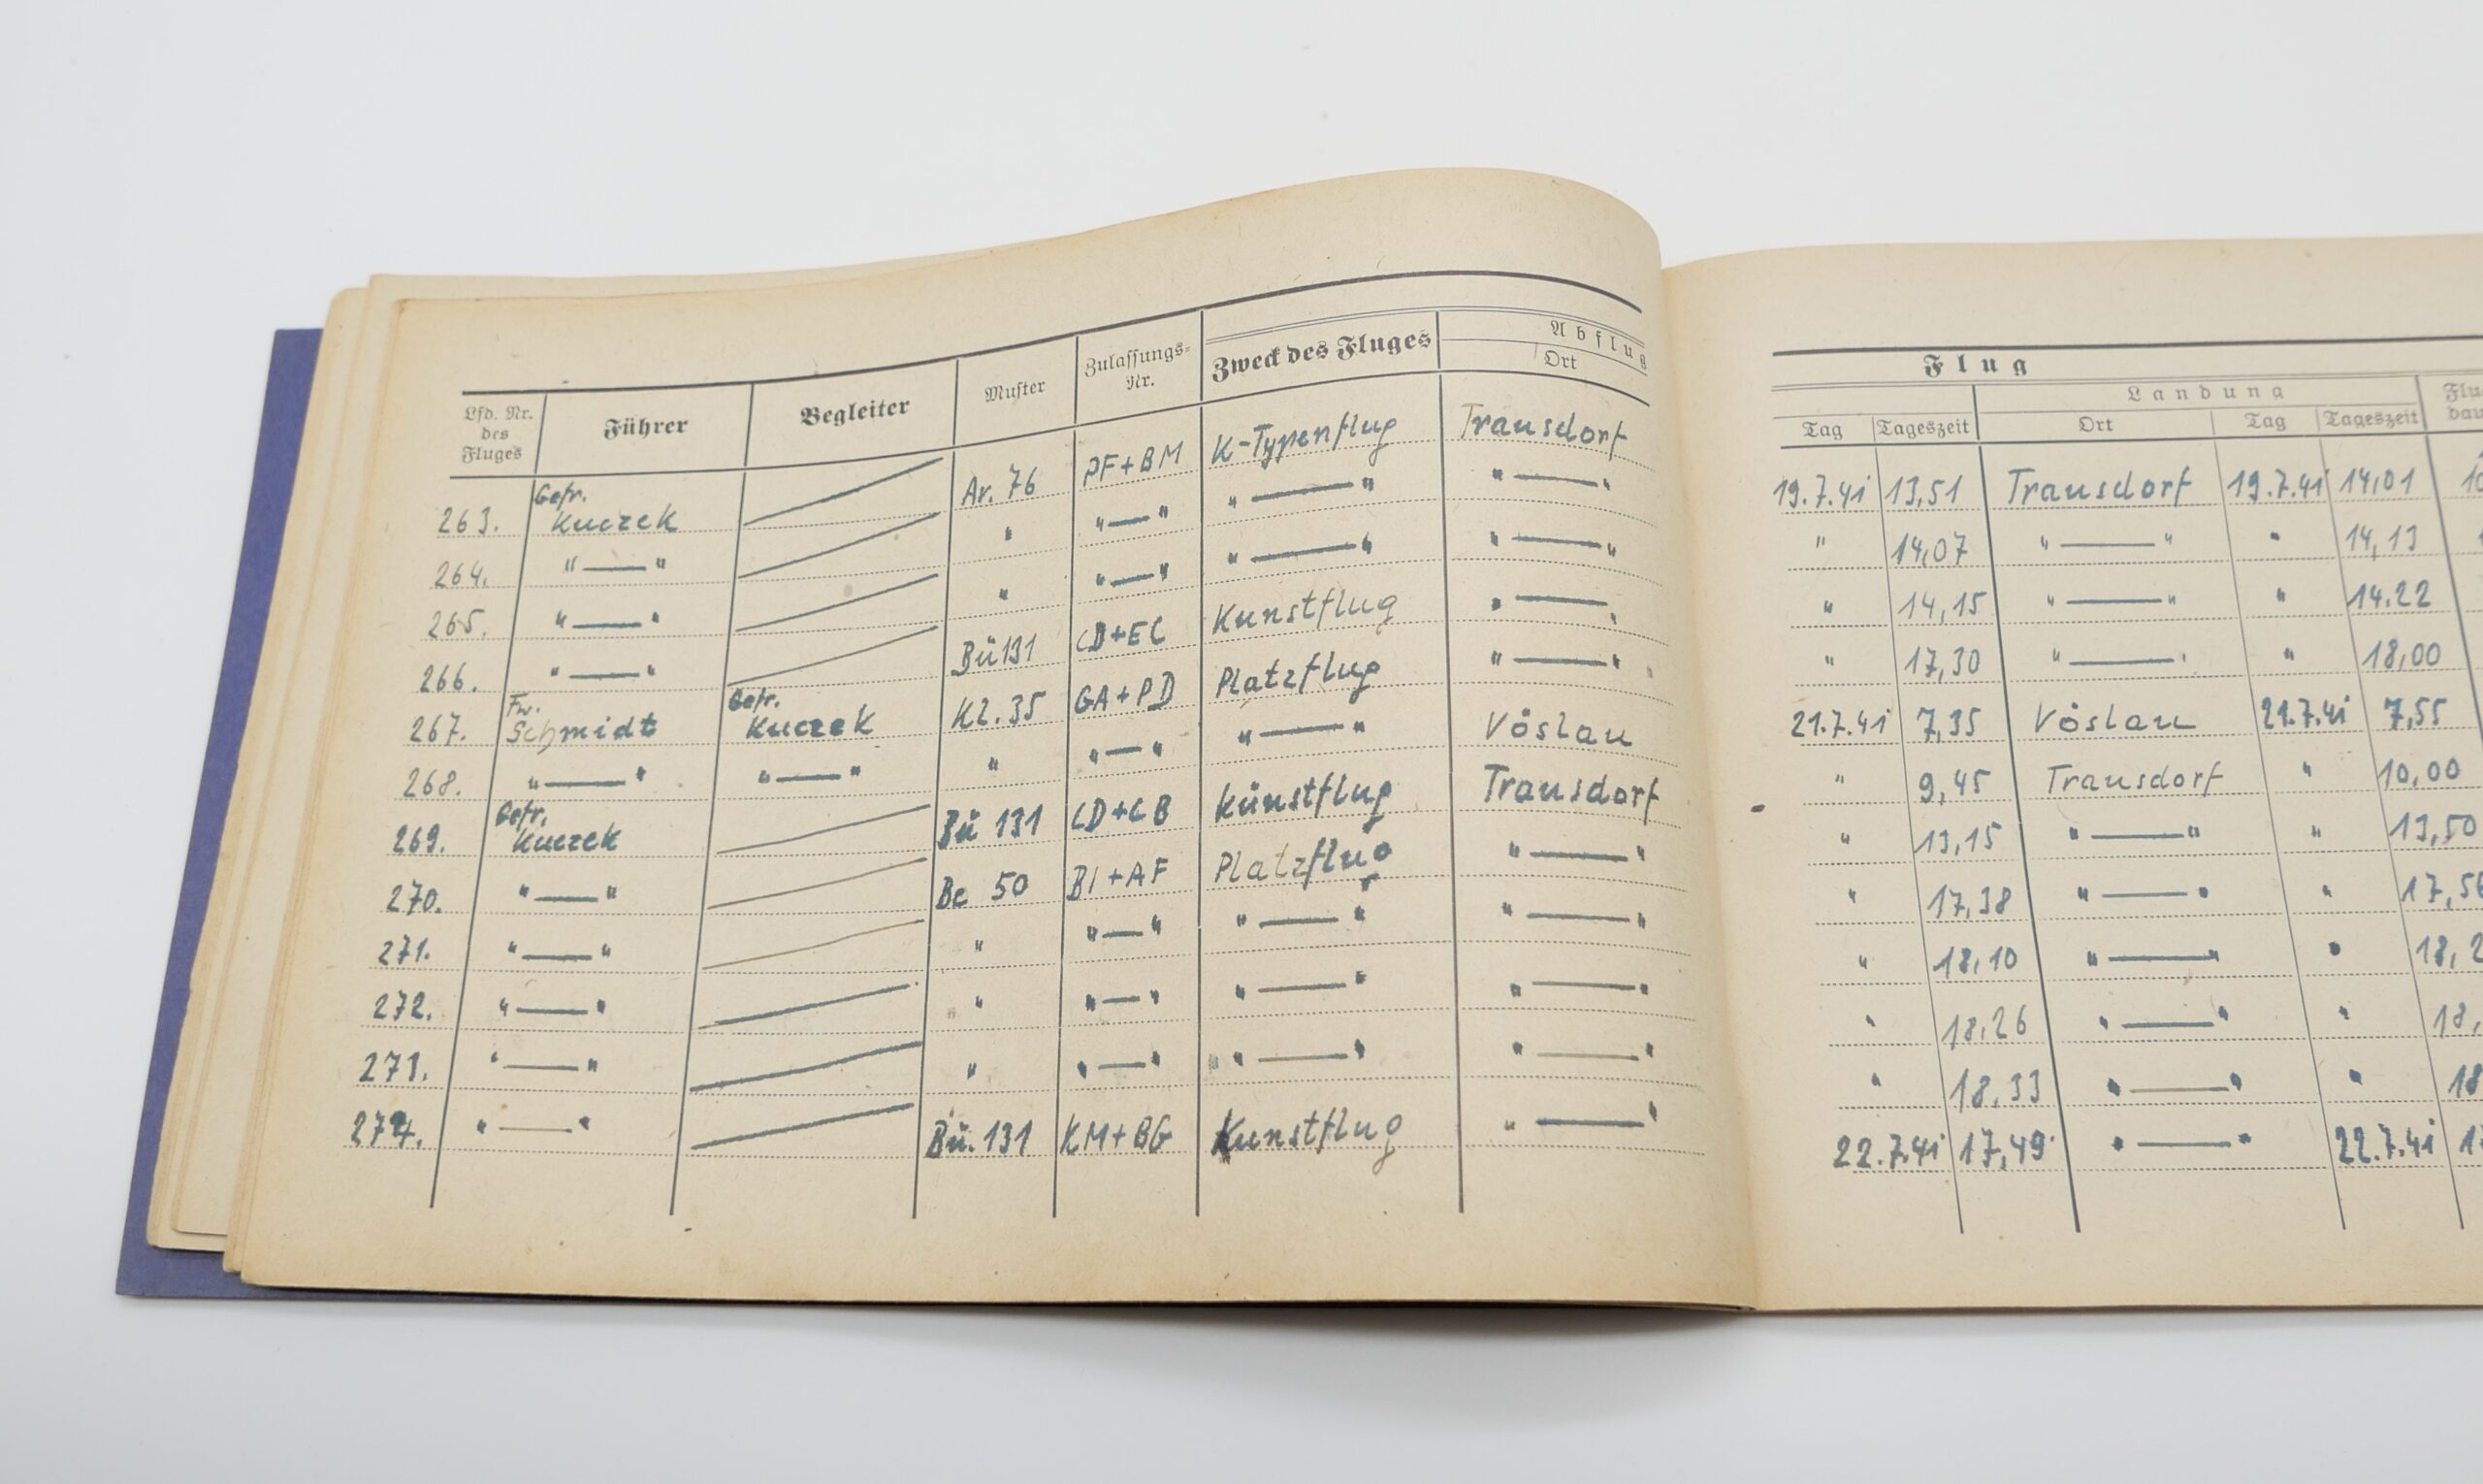 Lfd. Nr. des Fluges Führer Begleiter Muster Zulassungs-Nr. Zweck des Fluges Abflug Ort
Flug
Landung
Tag Tageszeit Ort Tag Tageszeit
263. Gefr. Kuczek Ar. 76 PF+BM K-Typenflug Trausdorf 19.7.41 13,51 Trausdorf 19.7.41 14,01
264. " — " " " — " " — " " — " " 14,07 " — " " 14,13
265. " — " " " — " " — " " — " " 14,15 " — " " 14.22
266. " — " Bü131 CD+EC Kunstflug " — " " 17,30 " — " " 18,00
267. Fw. Schmidt Gefr. Kuczek Kl. 35 GA+PD Platzflug " — " 21.7.41 7,35 Vöslau 21.7.41 7,55
268. " — " " — " " " — " " — " Vöslau " 9,45 Trausdorf " 10,00
269. Gefr. Kuczek Bü 131 CD+CB Künstflug Trausdorf " 13,15 " — " " 13,50
270. " — " Be 50 BI+AF Platzflug " — " " 17,38 " — " " 17,56
271. " — " " " — " " — " " — " " 18,10 " — " " 18,2
272. " — " " " — " " — " " — " " 18,26 " — " " 18,
273. " — " " " — " " — " " — " " 18,33 " — " " 18
274. " — " Bü. 131 KM+BG Kunstflug " — " 22.7.41 17,49 " — " 22.7.41 17